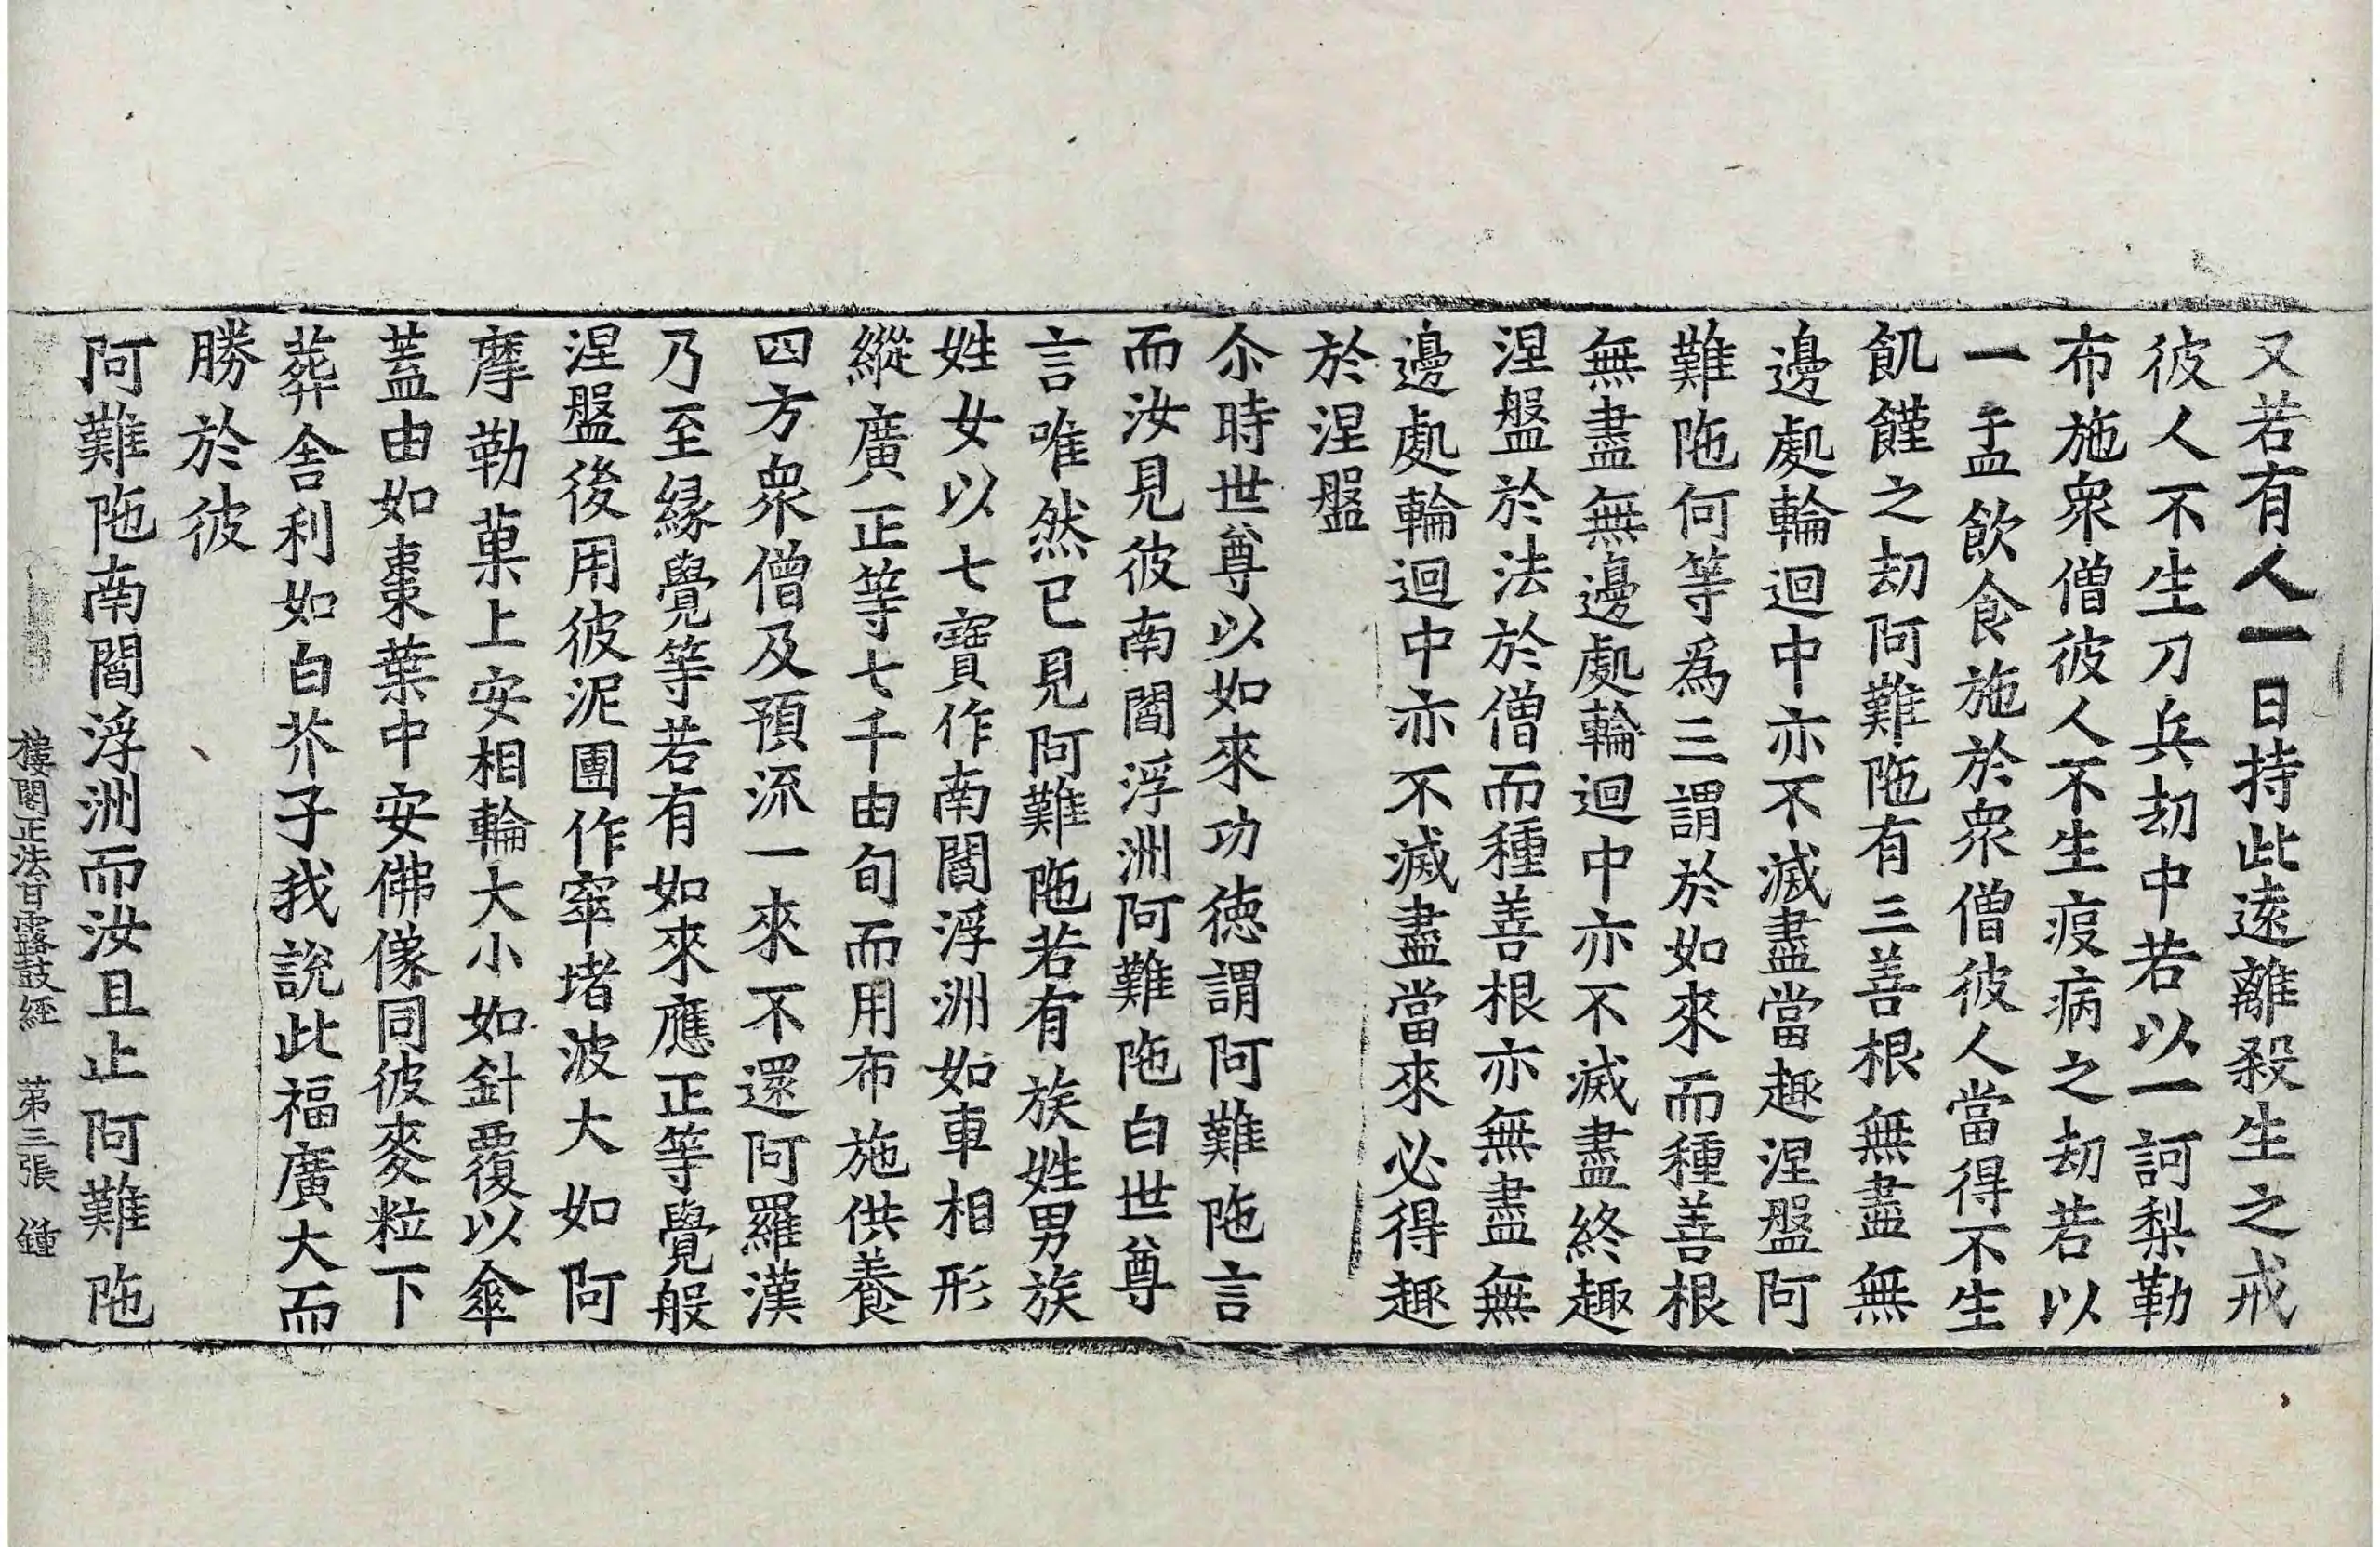 又若有人一日持此遠離殺生之戒
彼人不生刀兵劫中若以一訶梨勒
布施衆僧彼人不生疫病之劫若以
一盂飲食施於衆僧彼人當得不生
飢饉之劫阿難陁有三善根無盡無
邊處輪迴中亦不滅盡當趣涅盤阿
難陁何等爲三謂於如來而種善根
無盡無邊處輪迴中亦不滅盡終趣
涅盤於法於僧而種善根亦無盡無
邊處輪迴中亦不滅盡當來必得趣
於涅盤
尒時世尊以如來功德謂阿難陁言
而汝見彼南閻浮洲阿難陁白世尊
言唯然已見阿難陁若有族姓男族
姓女以七寶作南閻浮洲如車相形
縱廣正等七千由旬而用布施供養
四方衆僧及預流一來不還阿羅漢
乃至緣覺等若有如來應正等覺般
涅盤後用彼泥團作窣堵波大如阿
摩勒菓上安相輪大小如針覆以傘
蓋由如棗葉中安佛像同彼麥粒下
葬舍利如白芥子我說此福廣大而
勝於彼
阿難陁南閻浮洲而汝且止阿難陁
樓閣正法甘露鼓經　第三張　鍾